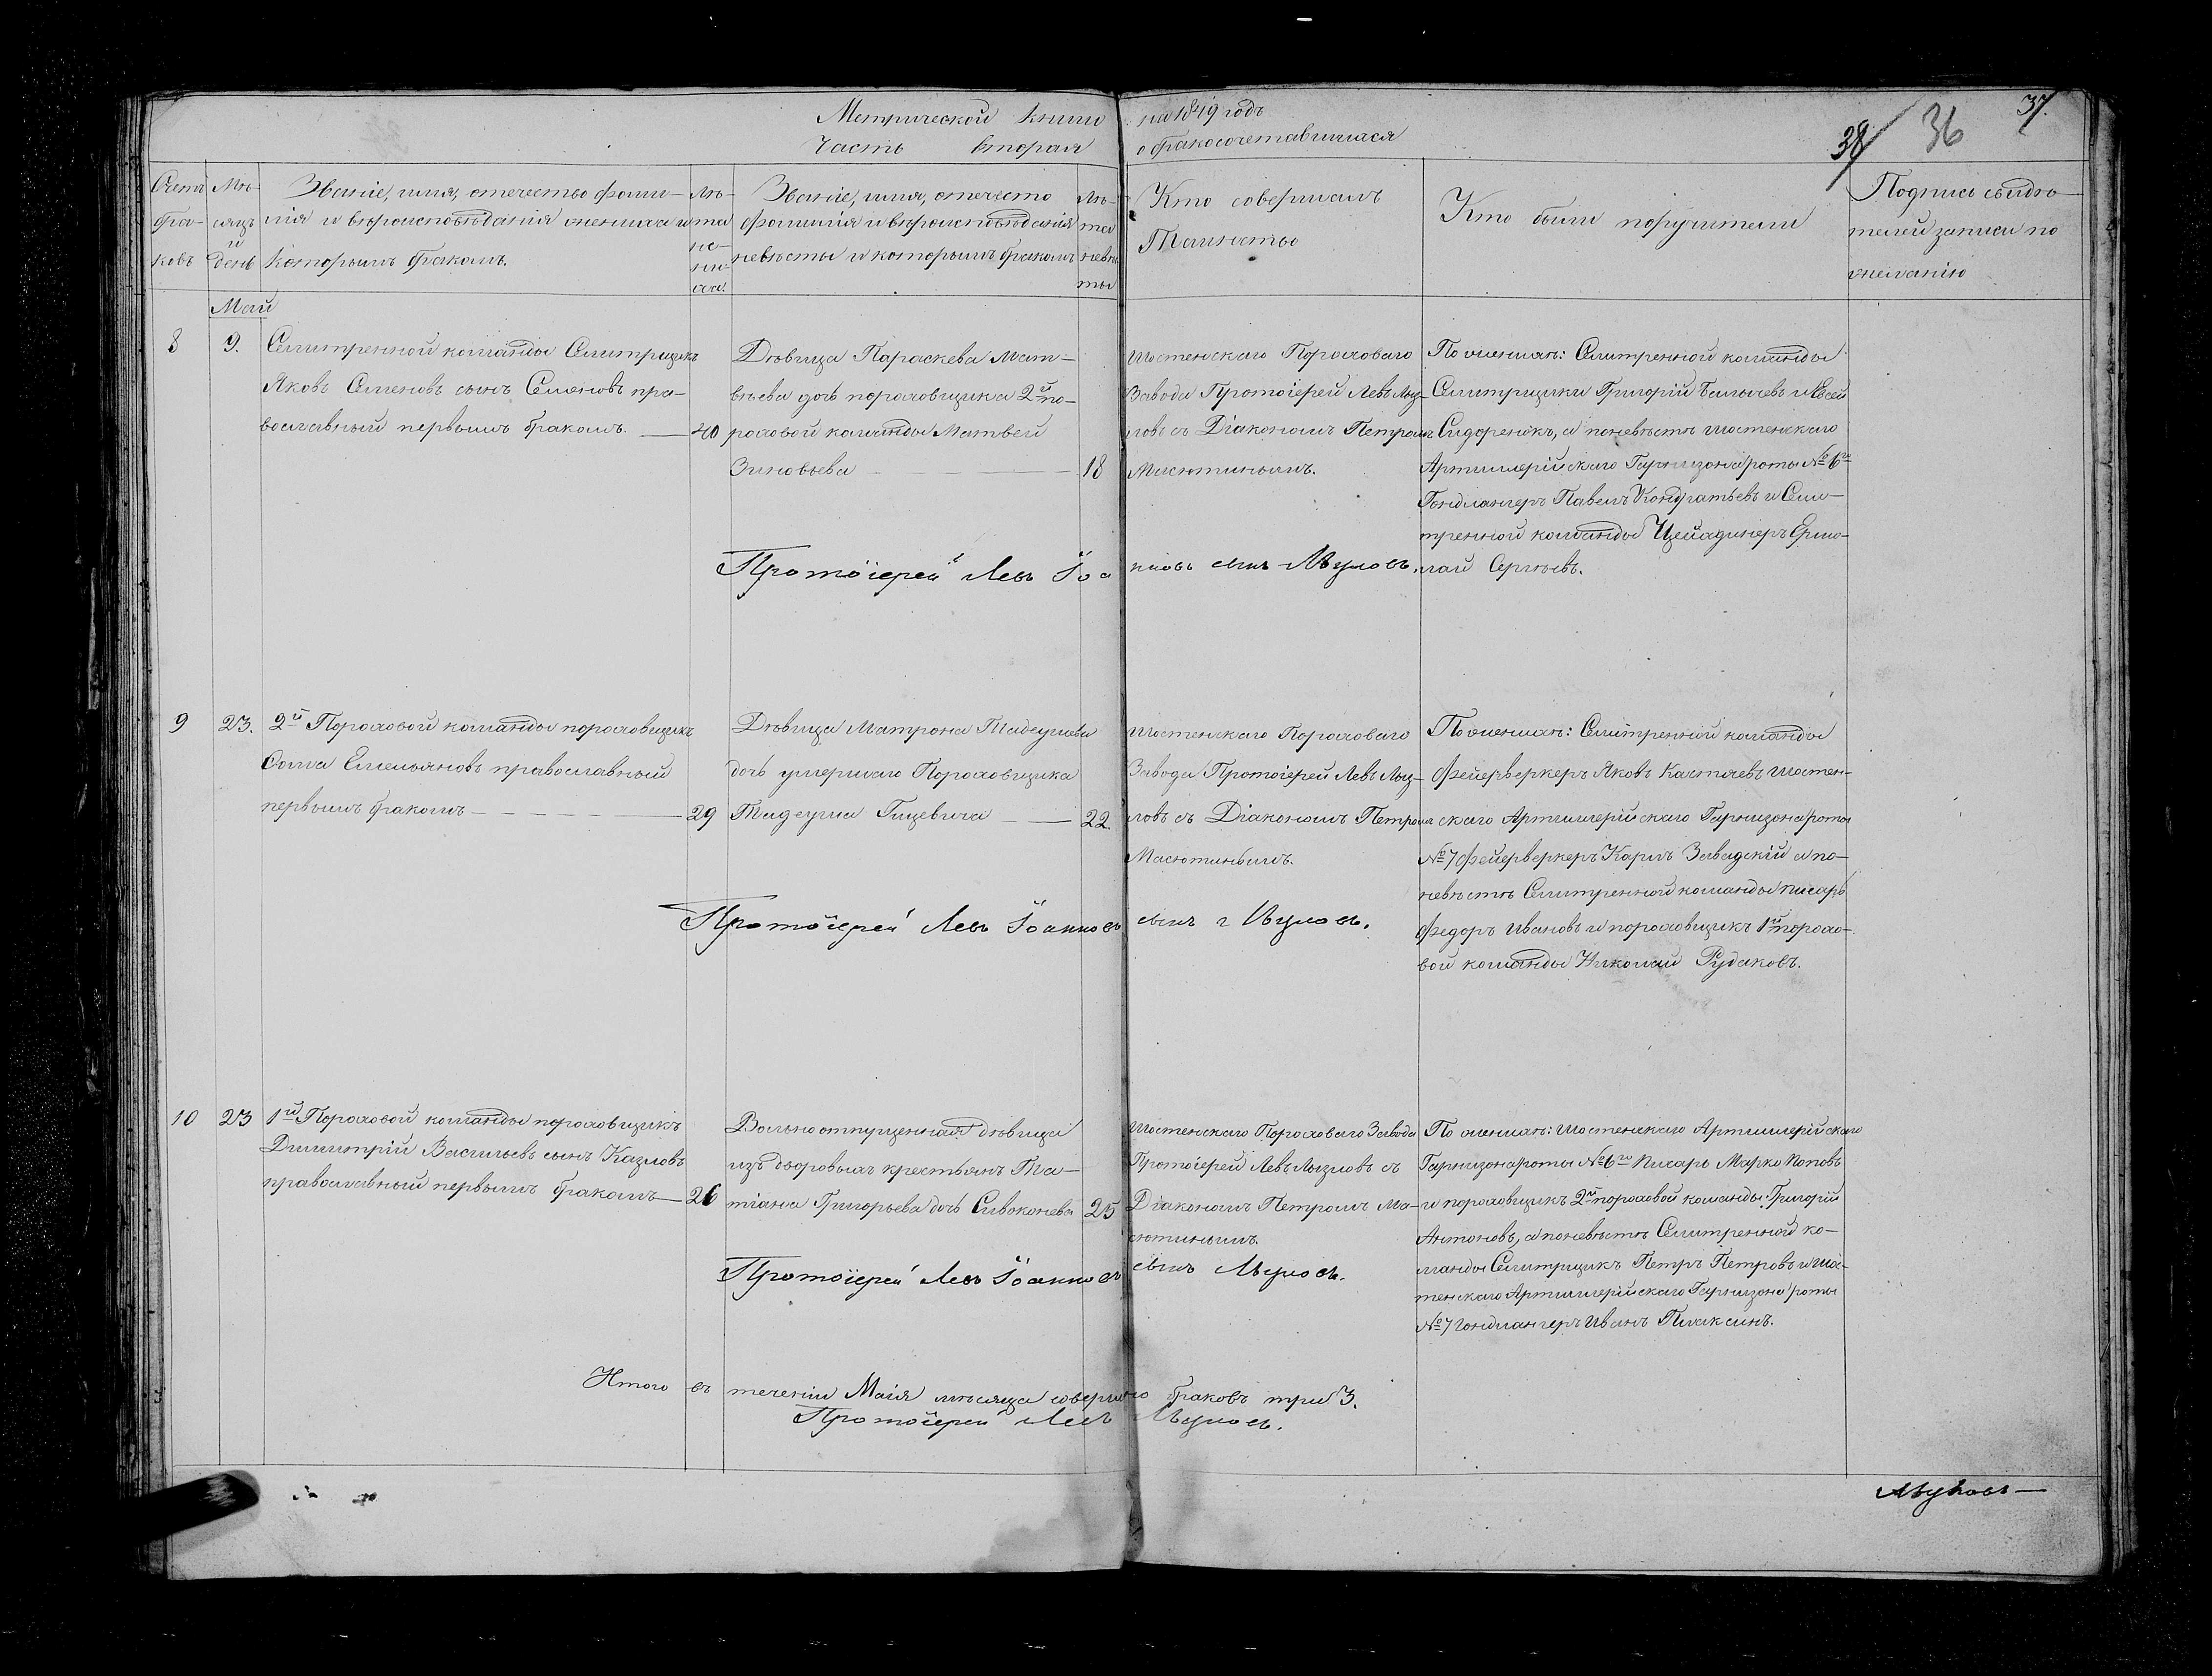 Метрической книги на 1849 годъ
Часть вторая о бракосочетавшихся
38 36 37.
Счетъ браковъ
Мѣсяцъ и день
Званіе, имя, отечество фами-
лія и вѣроисповѣданія жениха и
которымъ бракомъ.
Лѣта жениха.
Званіе, имя, отечесто
фамилія и вѣроисповѣданія
невѣсты и которымъ бракомъ
Лѣта невѣсты
Кто совершалъ
Таинство
Кто были поручители
Подпись свидѣ-
телей записи по
желанію
Май
8 9.
Селитренной команды Селитрщикъ
Яковъ Семеновъ сынъ Семеновъ пра-
вославный первымъ бракомъ. 40
Дѣвица Параскева Мат-
вѣева дочь пороховщика 2й по-
роховой команды Матвея
Зиновьева 18
Шостенскаго Пороховаго
Завода Протоіерей Левъ Лыз-
ловъ съ Діакономъ Петромъ
Масютинымъ.
По женихѣ: Селитренной команды
Селитрщики Григорій и Евсей
Сидоренокъ, а по невѣстѣ шостенскаго
Артиллерійскаго Гарнизона роты № 6го
Гандлангеръ Павелъ Кондратьевъ и Сели-
тренной команды Цейгдинеръ Ермо-
лай Сергѣевъ.
Протоіерей Левъ Іоанновъ сынъ Лызловъ.
9 23.
2й Пороховой команды пороховщикъ
Фома Емельяновъ православный
первымъ бракомъ 29
Дѣвица Матрона Тадеушева
дочь умершаго Пороховщика
Тадеуша Гицевича 22.
Шостенскаго Пороховаго
Завода Протоіерей Левъ Лыз-
ловъ съ Діакономъ Петромъ
Масютинымъ.
По женихѣ: Селитренной команды
Фейерверкеръ Яковъ шостен-
скаго Артиллерійскаго Гарнизона роты
№ 7 Фейерверкеръ Карлъ Завадскій а по-
невѣстѣ Селитренной команды писарь
Федоръ Ивановъ и пороховщикъ 1й порохо-
вой команды Николай Рудаковъ.
Протоіерей Левъ Іоанновъ сынъ Лызловъ.
10 23
1й Пороховой команды пороховщикъ
Димитрій Васильевъ сынъ Казловъ
православный первымъ бракомъ 26
Вольноотпущенная дѣвица
изъ дворовыхъ крестьянъ Та-
тіана Григорьева дочь Сивоконева 25
Шостенскаго Пороховаго Завода
Протоіерей Левъ Лызловъ съ
Діакономъ Петромъ Ма-
сютинымъ.
По женихѣ: Шостенскаго Артиллерійскаго
Гарнизона роты № 6го Писарь Марко Поповъ
и пороховщикъ 2й пороховой команды Григорій
Антоновъ, а по невѣстѣ Селитренной ко-
манды Селитрщикъ Петръ Петровъ и шос-
тенскаго Артиллерійскаго Гарнизона роты
№ 7 Гандлангеръ Иванъ Плаксинъ.
Протоіерей Левъ Іоанновъ сынъ Лызловъ.
Итого въ теченіи Маія мѣсяца совершено браковъ три 3.
Протоіерей Левъ Лызловъ.